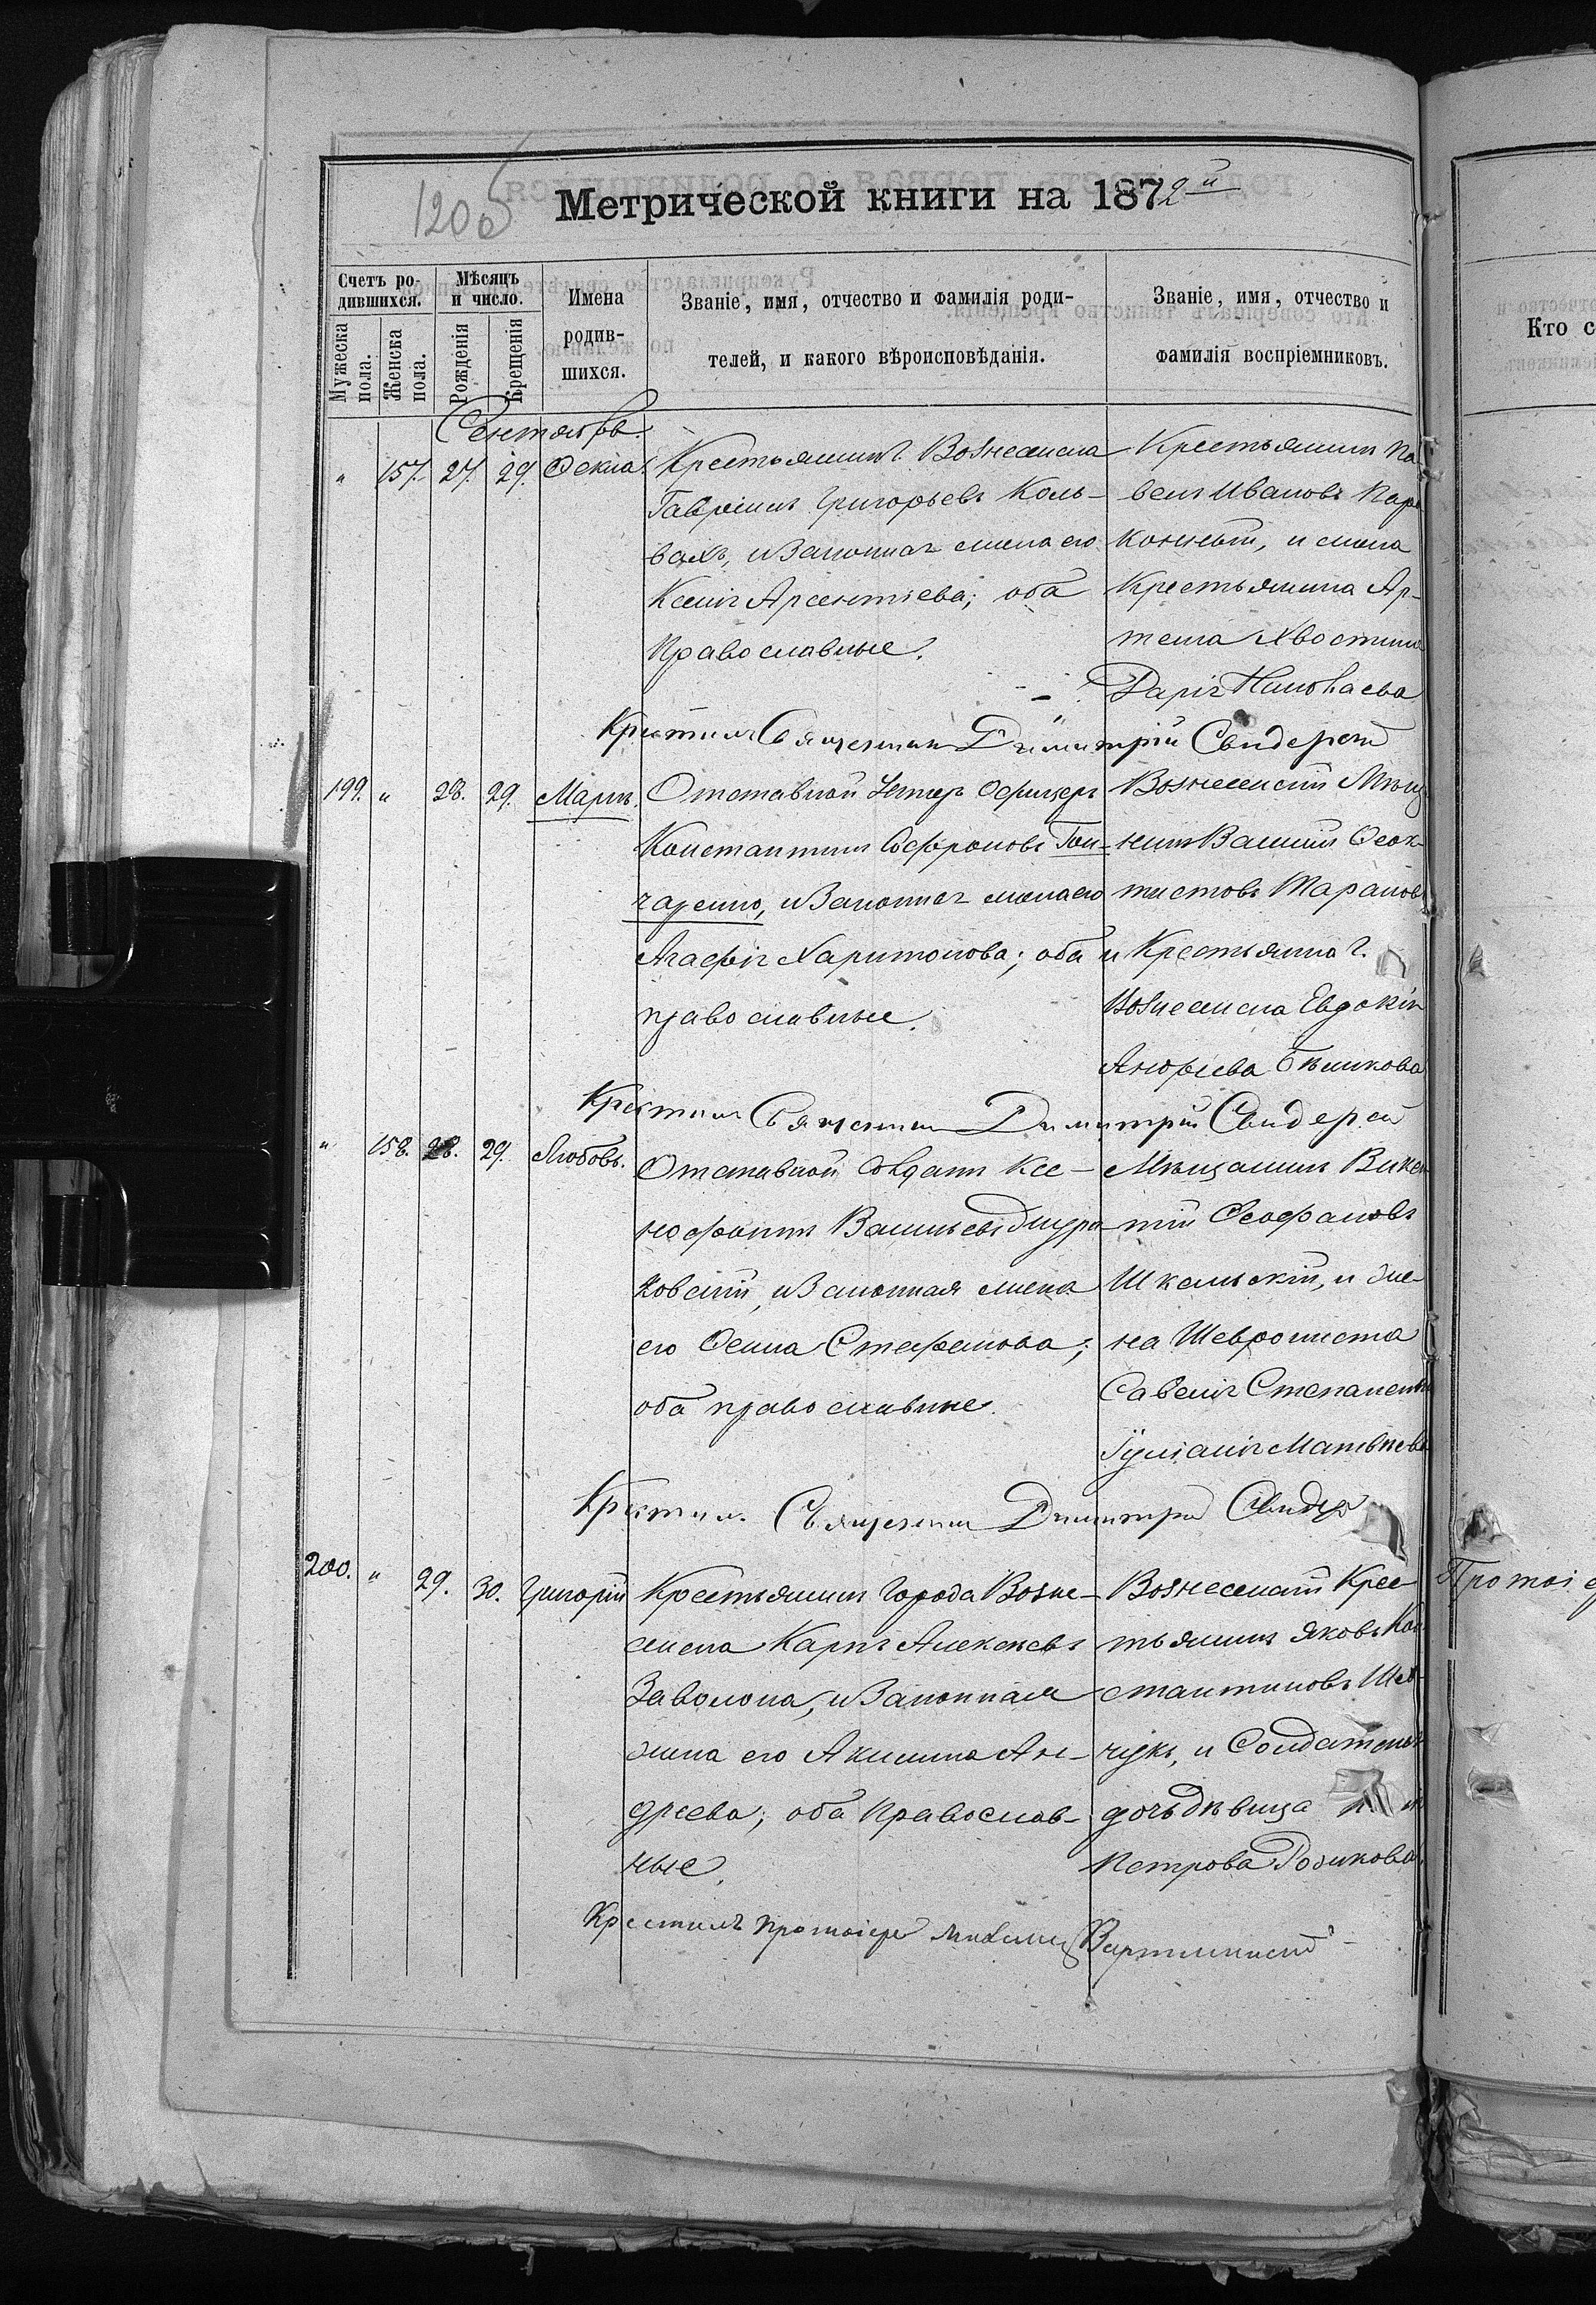 1205
Метрической книги на 1872й
Счетъ ро-
дившихся.
Мѣсяцъ
и число.
Мужеска
пола.
Женска
пола.
Рожденія
Крещенія
Имена
родив-
шихся.
Званіе, имя, отчество и фамилія роди-
телей, и какого вѣроисповѣданія.
Званіе, имя, отчество и
фамилія воспріемниковъ.
Сентябрь.
" 157. 27. 29. Ѳекла.
Крестьянинъ г. Вознесенска
Гавріилъ Григорьевъ Коль-
вахъ, и законная жена его
Ксенія Арсентіева; оба
Православные.
Крестьянинъ Па-
велъ Иванов
и жена
Крестьянина Ар-
тема
Дарія Николаева
Крестилъ Священникъ Димитрій Свидерскій
199. " 28. 29. Марк.
Отставной Унтеръ Офицеръ
Константинъ Софроновъ Гон-
чаренко, и законная жена его
Агафія Харитонова; оба
православные.
Вознесенскій Мѣща
нинъ Василій Ѳеок-
тистовъ Таранов
и Крестьянка г.
Вознесенска Евдокія
Андреева
Крестилъ Священник Димитрій Свидерскій
" 158. 28. 29. Любовь.
Отставной Солдатъ Ксе-
нофонтъ Васильевъ
и законная жена
его Ѳекла Стефанова;
оба православные.
Мѣщанинъ Викен
тій Ѳеофановъ
Шкальскій, и же-
на
Савелія Степаненк
Іуліанія Матвѣева
Крестилъ Священник Димитрій Свидер
200. " 29. 30. Григорій
Крестьянинъ города Возне-
сенска Карпъ Алексѣевъ
Заволока, и законная
жена его Акилина Ан-
дреева; оба Православ-
ные.
Вознесенскій Крес-
тьянинъ Яковъ Кон
стантиновъ Шев
чукъ, и Солдатская
дочь дѣвица
Петрова
Крестилъ протоіерей
Кто с
Протоі е